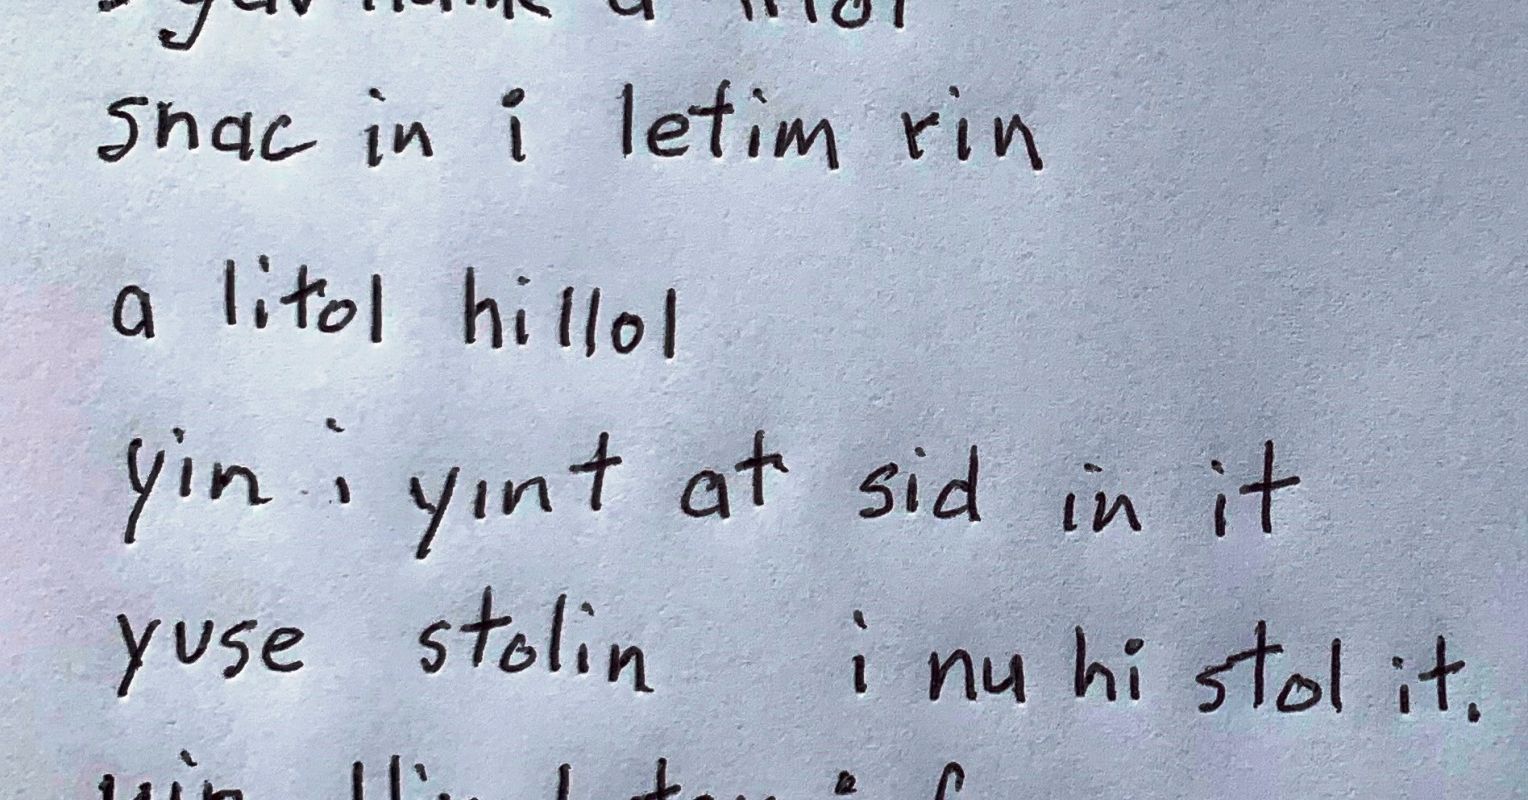 snac in i letim rin
a litol hillol
yin i yint at sid in it
yuse stolin i nu hi stol it.